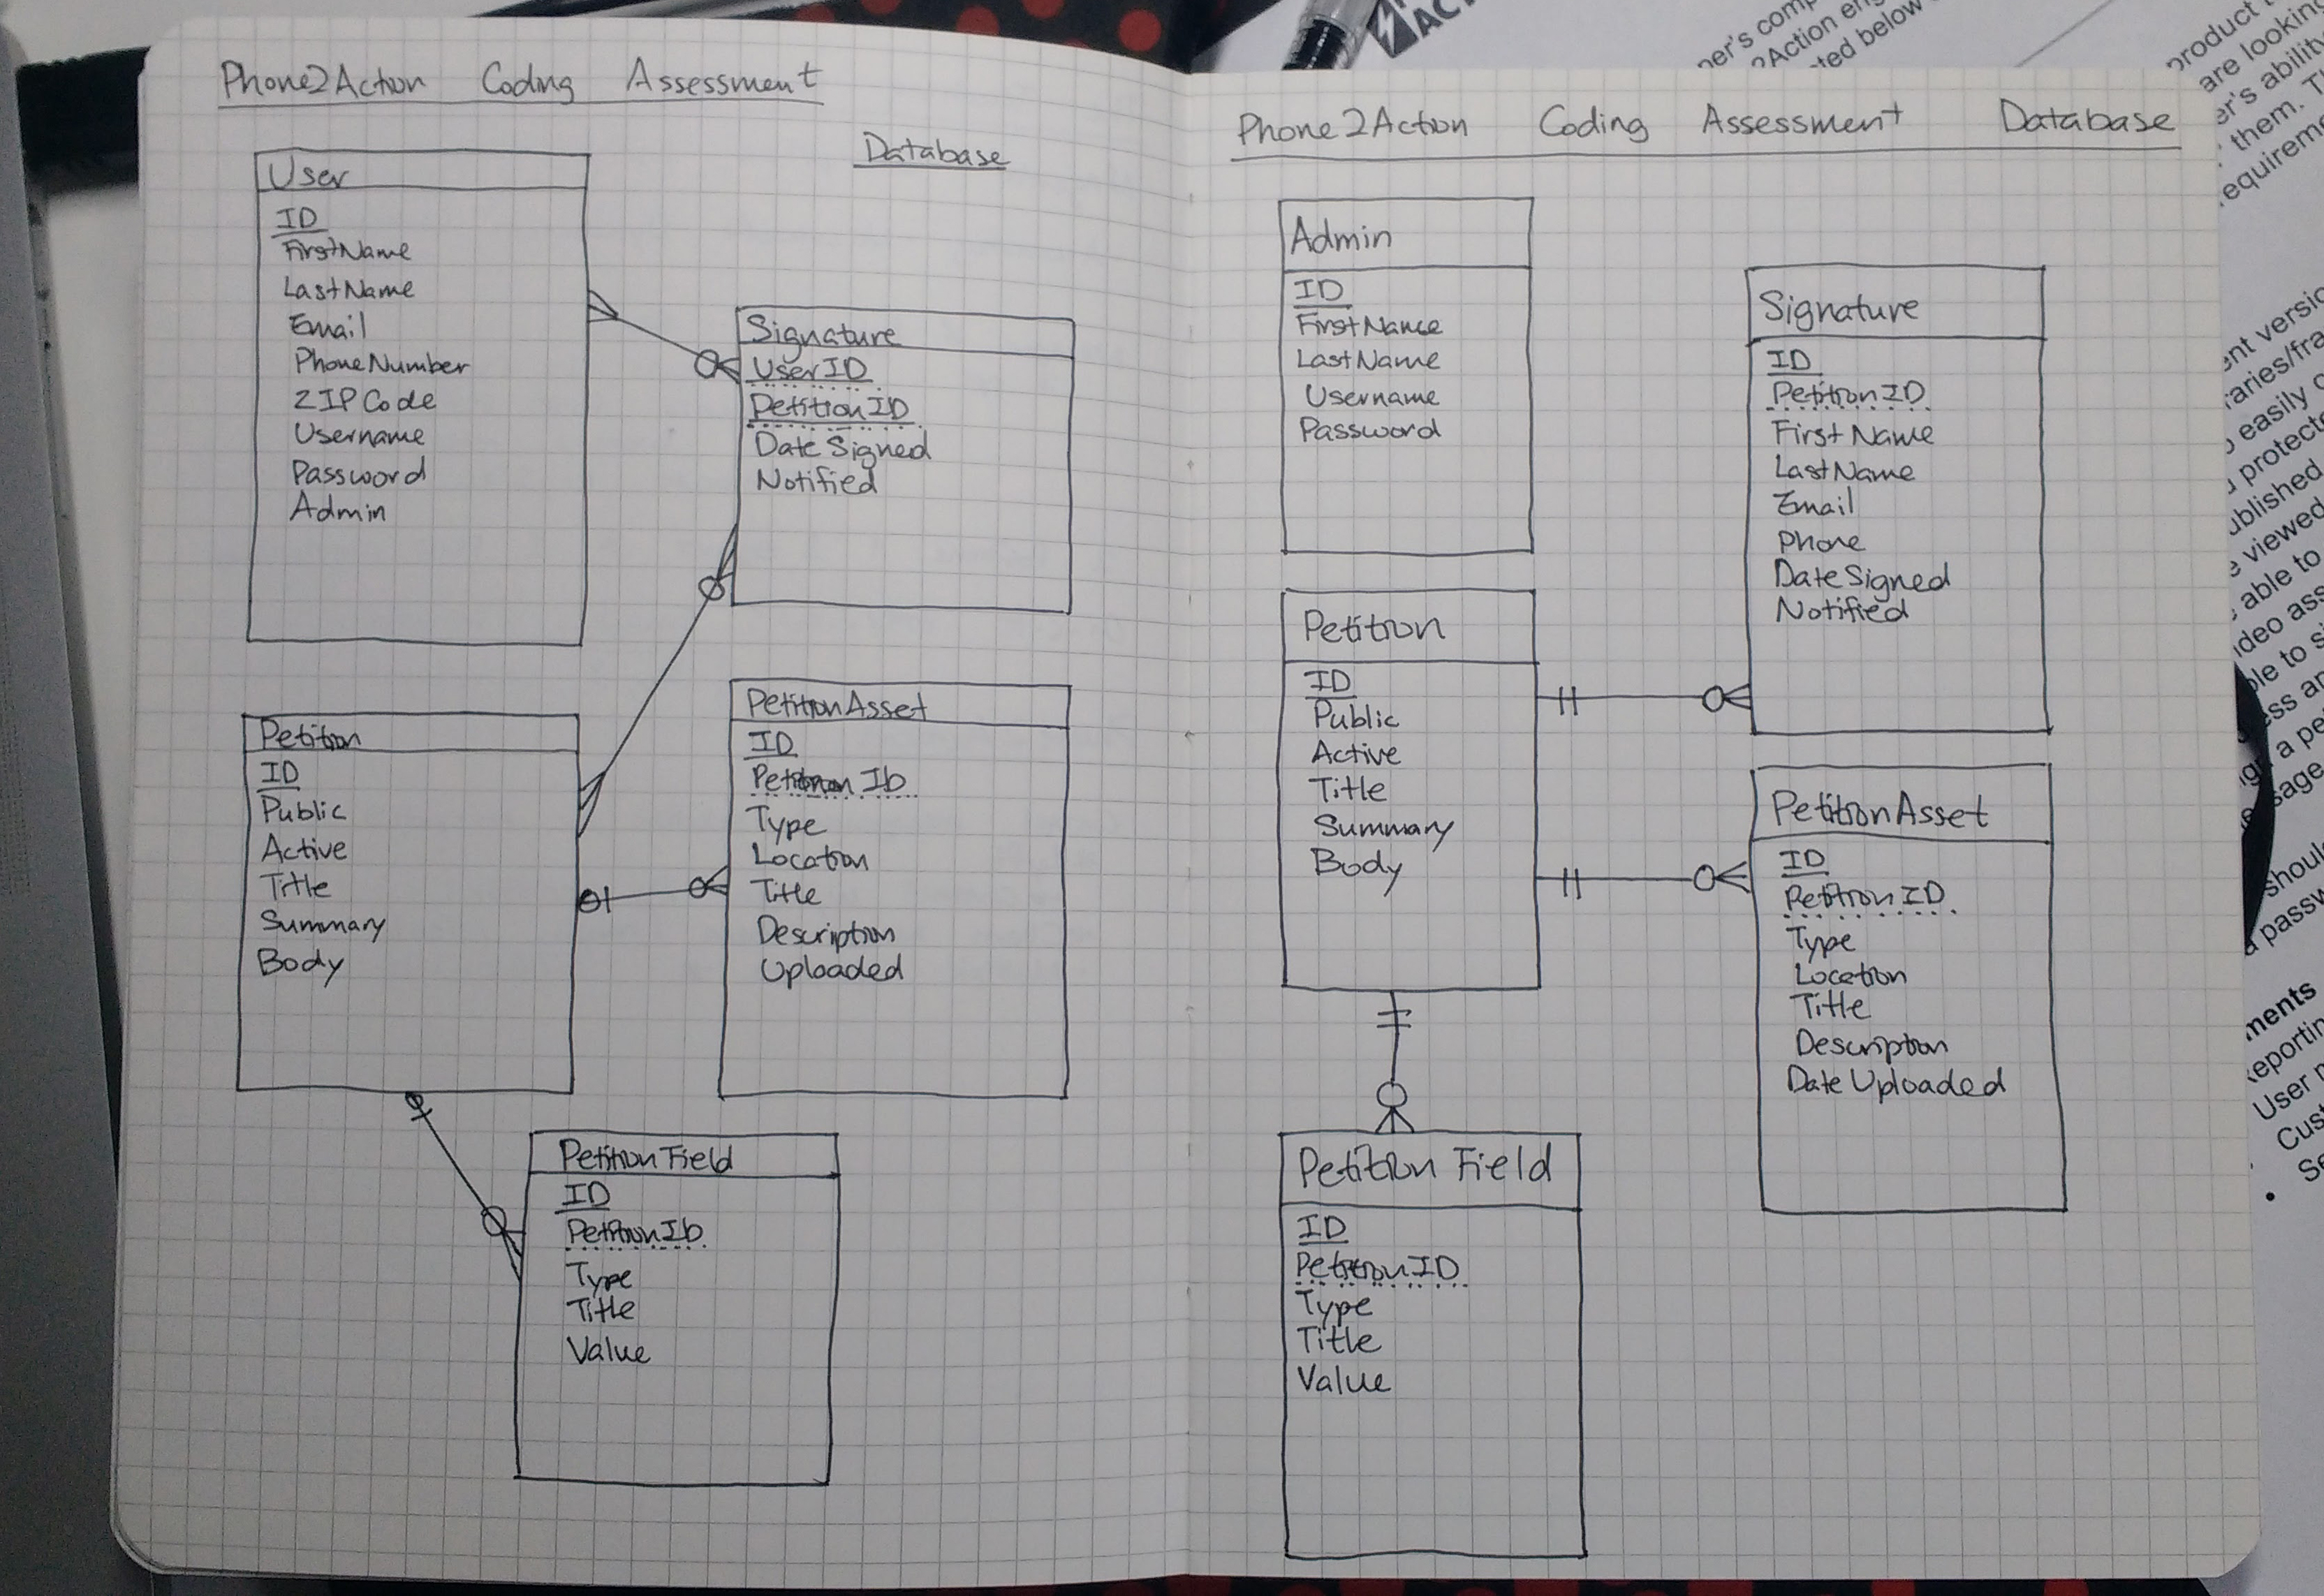 Phone2Action Coding Assessment
Database
User
ID
FirstName
LastName
Email
PhoneNumber
ZIPCode
Username
Password
Admin
Signature
UserID
PetitionID
DateSigned
Notified
Petition
ID
Public
Active
Title
Summary
Body
PetitionAsset
ID
PetitionID
Type
Location
Title
Description
Uploaded
PetitionField
ID
PetitionID
Type
Title
Value
Phone2Action Coding Assessment Database
Admin
ID
FirstName
LastName
Username
Password
Signature
ID
PetitionID
FirstName
LastName
Email
Phone
DateSigned
Notified
Petition
ID
Public
Active
Title
Summary
Body
PetitionAsset
ID
PetitionID
Type
Location
Title
Description
DateUploaded
Petition Field
ID
PetitionID
Type
Title
Value
product
are looking
ability
them.
Action
ted below
easily
viewed
able to